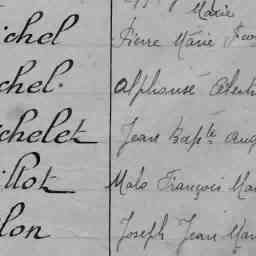 Marie
ichel Pierre Marie
chel. Alphonse
chelet Jean Bapte Aug
illot Malo François Ma
lon Joseph Jean Mar